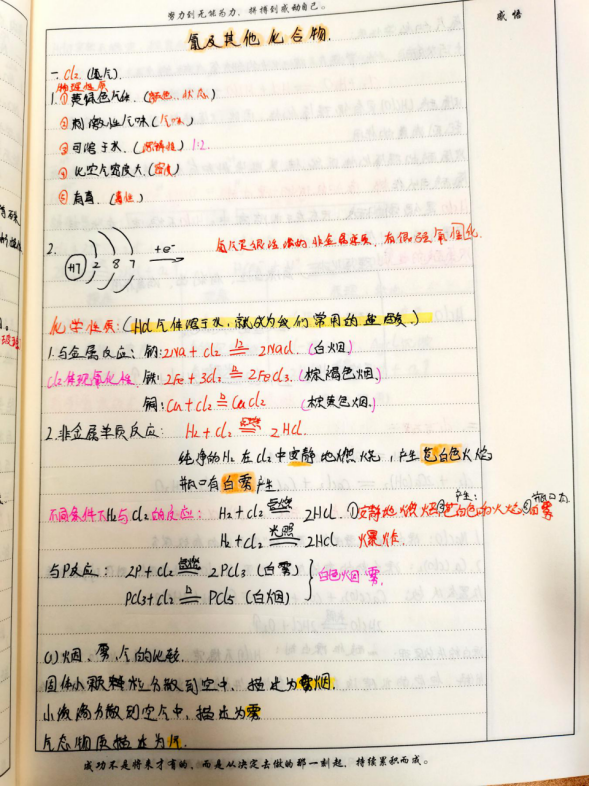 努力到无能为力，拼搏到感动自己。
感悟
氯及其他化合物.
一. Cl₂ (氯气).
物理性质
1. ①黄绿色气体. (颜色. 状态)
②刺激性气味 (气味)
③可溶于水. (溶解性) 1:2.
④比空气密度大. (密度)
⑤有毒. (毒性)
2. +17 2 8 7 +e⁻ 氯气是很活泼的非金属单质, 有很强氧化性.
化学性质: (HCl气体溶于水, 就成为我们常用的盐酸.)
1. 与金属反应: 钠: 2Na + Cl₂ ≜ 2NaCl. (白烟.)
Cl₂体现氧化性. 铁: 2Fe + 3Cl₂ ≜ 2FeCl₃. (棕褐色烟.)
铜: Cu + Cl₂ ≜ CuCl₂ (棕黄色烟.)
2. 非金属单质反应: H₂ + Cl₂ 点燃 2HCl.
纯净的H₂在Cl₂中安静地燃烧, 产生苍白色火焰
瓶口有白雾产生.
不同条件下H₂与Cl₂的反应: H₂ + Cl₂ 点燃 2HCl. ①安静地燃烧②产生: 苍白色的火焰③瓶口有白雾
H₂ + Cl₂ 光照 2HCl 爆炸.
与P反应: 2P + Cl₂ 点燃 2PCl₃ (白雾)
白色烟雾.
PCl₃ + Cl₂ ≜ PCl₅ (白烟)
(1) 烟、雾、气的比较.
固体小颗粒分散到空中, 描述为烟.
小液滴分散到空气中, 描述为雾
气态物质描述为气.
成功不是将来才有的，而是从决定去做的那一刻起，持续累积而成。